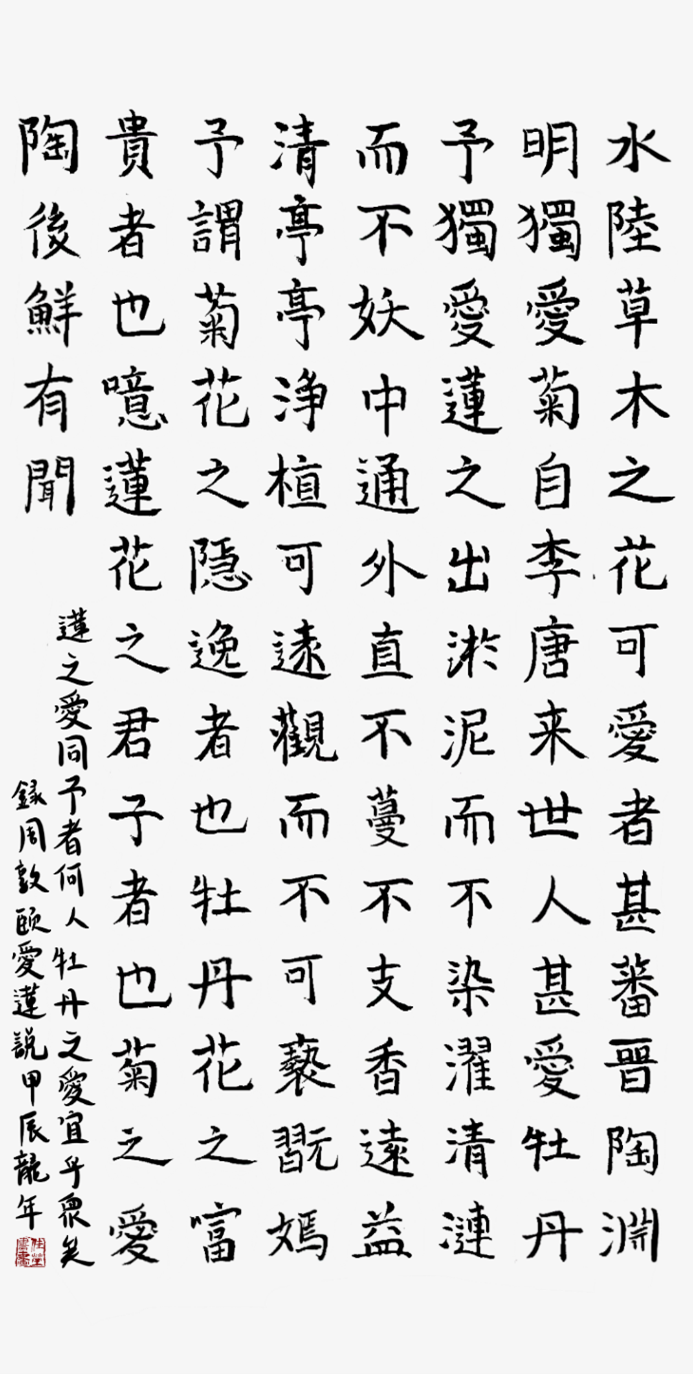 水陸草木之花可愛者甚蕃晉陶淵
明獨愛菊自李唐来世人甚愛牡丹
予獨愛蓮之出淤泥而不染濯清漣
而不妖中通外直不蔓不支香遠益
清亭亭浄植可遠觀而不可褻翫嫣
予謂菊花之隠逸者也牡丹花之富
貴者也噫蓮花之君子者也菊之愛
陶後鮮有聞
蓮之愛同予者何人牡丹之愛宜乎衆矣
録周敦頤愛蓮説甲辰龍年